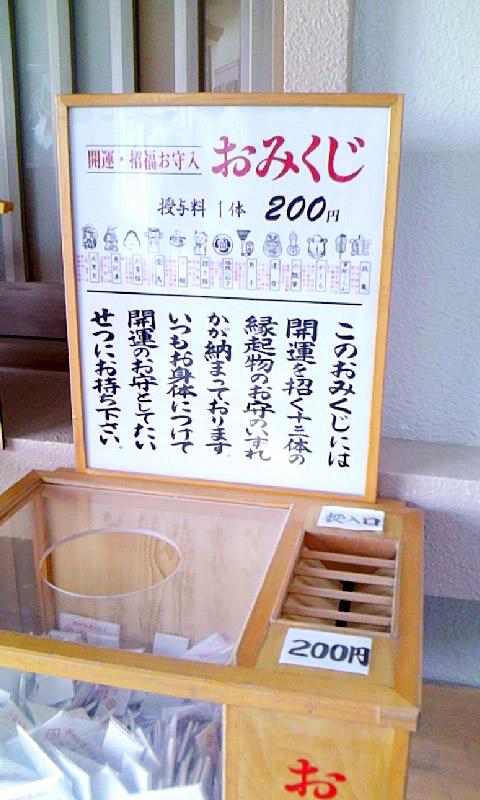 開運・招福お守入
おみくじ
授与料 1体 200円
このおみくじには
開運を招く十三体の
縁起物のお守のいずれ
かが納まっております。
いつもお身体につけて
開運のお守としてたい
せつにお持ち下さい。
投入口
200円
お